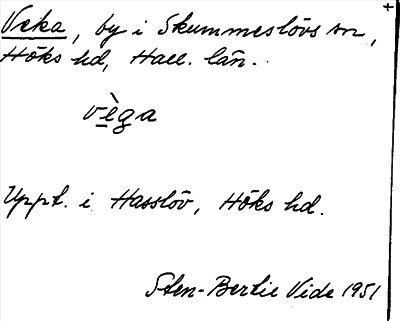 Veka, by i Skummeslövs sn,
Höks hd, Hall. län.
vèga
Uppt. i Hasslöv, Höks hd.
Sten-Bertil Vide 1951